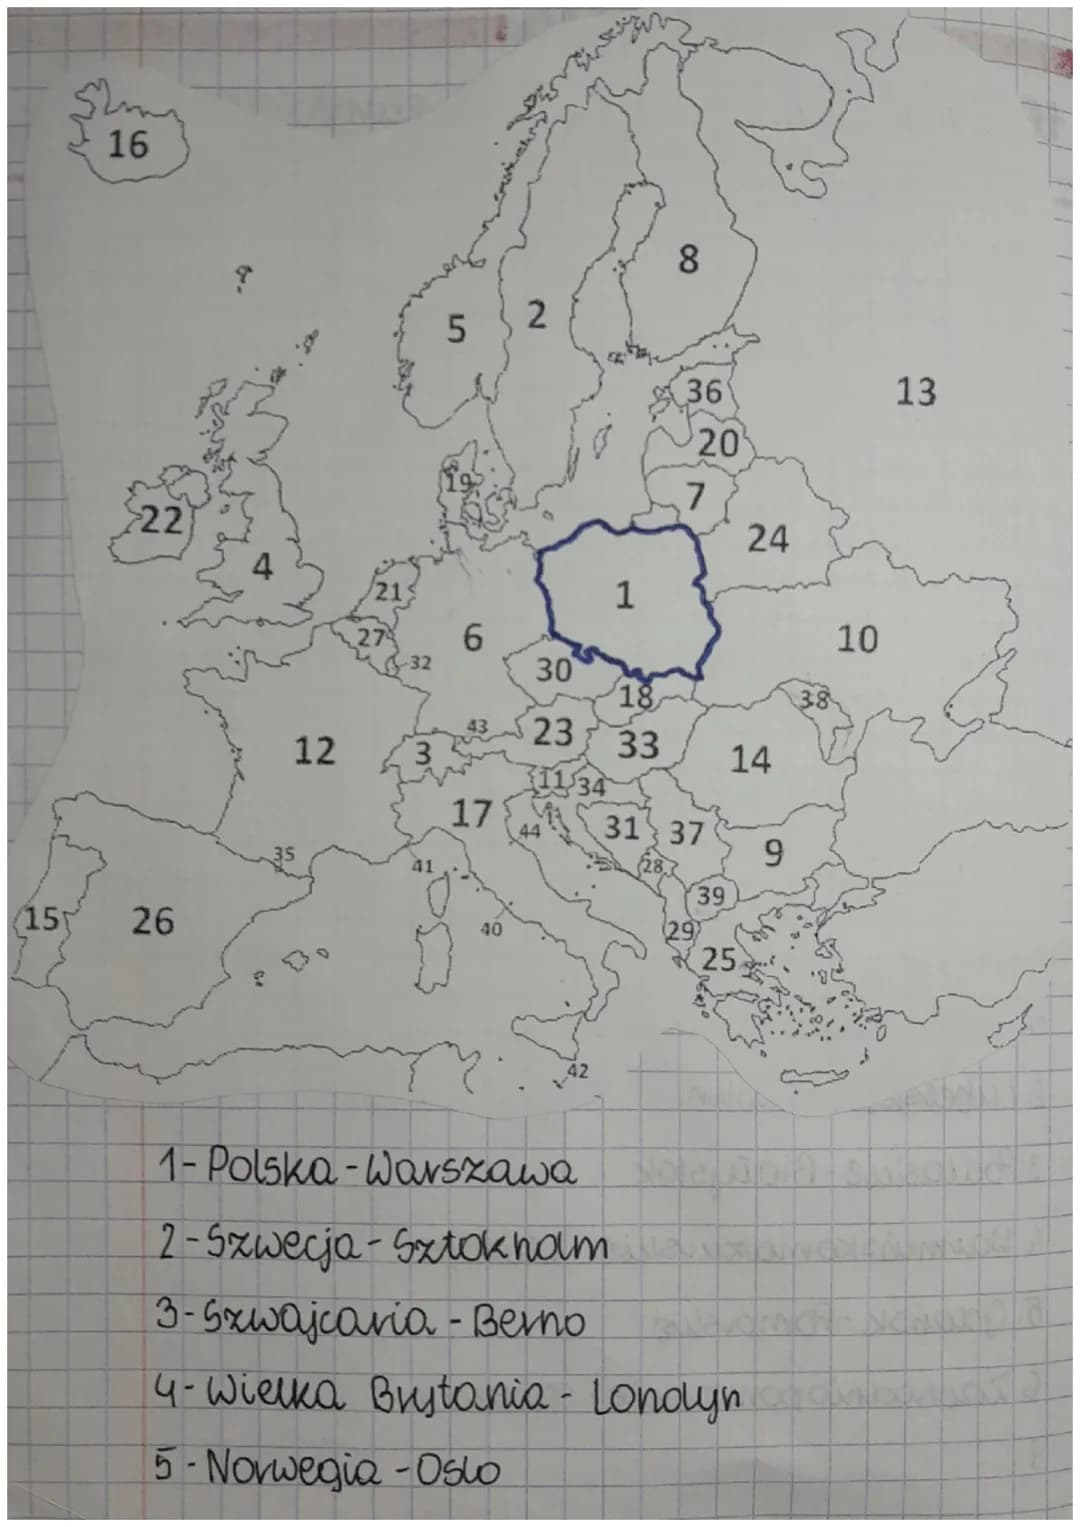 16
8
5
2
13
36
20
19
7
22
24
4
21
1
27
6
10
32
30
18
38
43
23
12
3
33
14
11
34
17
44
31
37
9
35
41
28
39
15
26
40
29
25
42
1-Polska-Warszawa
2-Szwecja-Sztokholm
3-Szwajcaria-Berno
4-Wielka Brytania-Londyn
5-Norwegia-Oslo